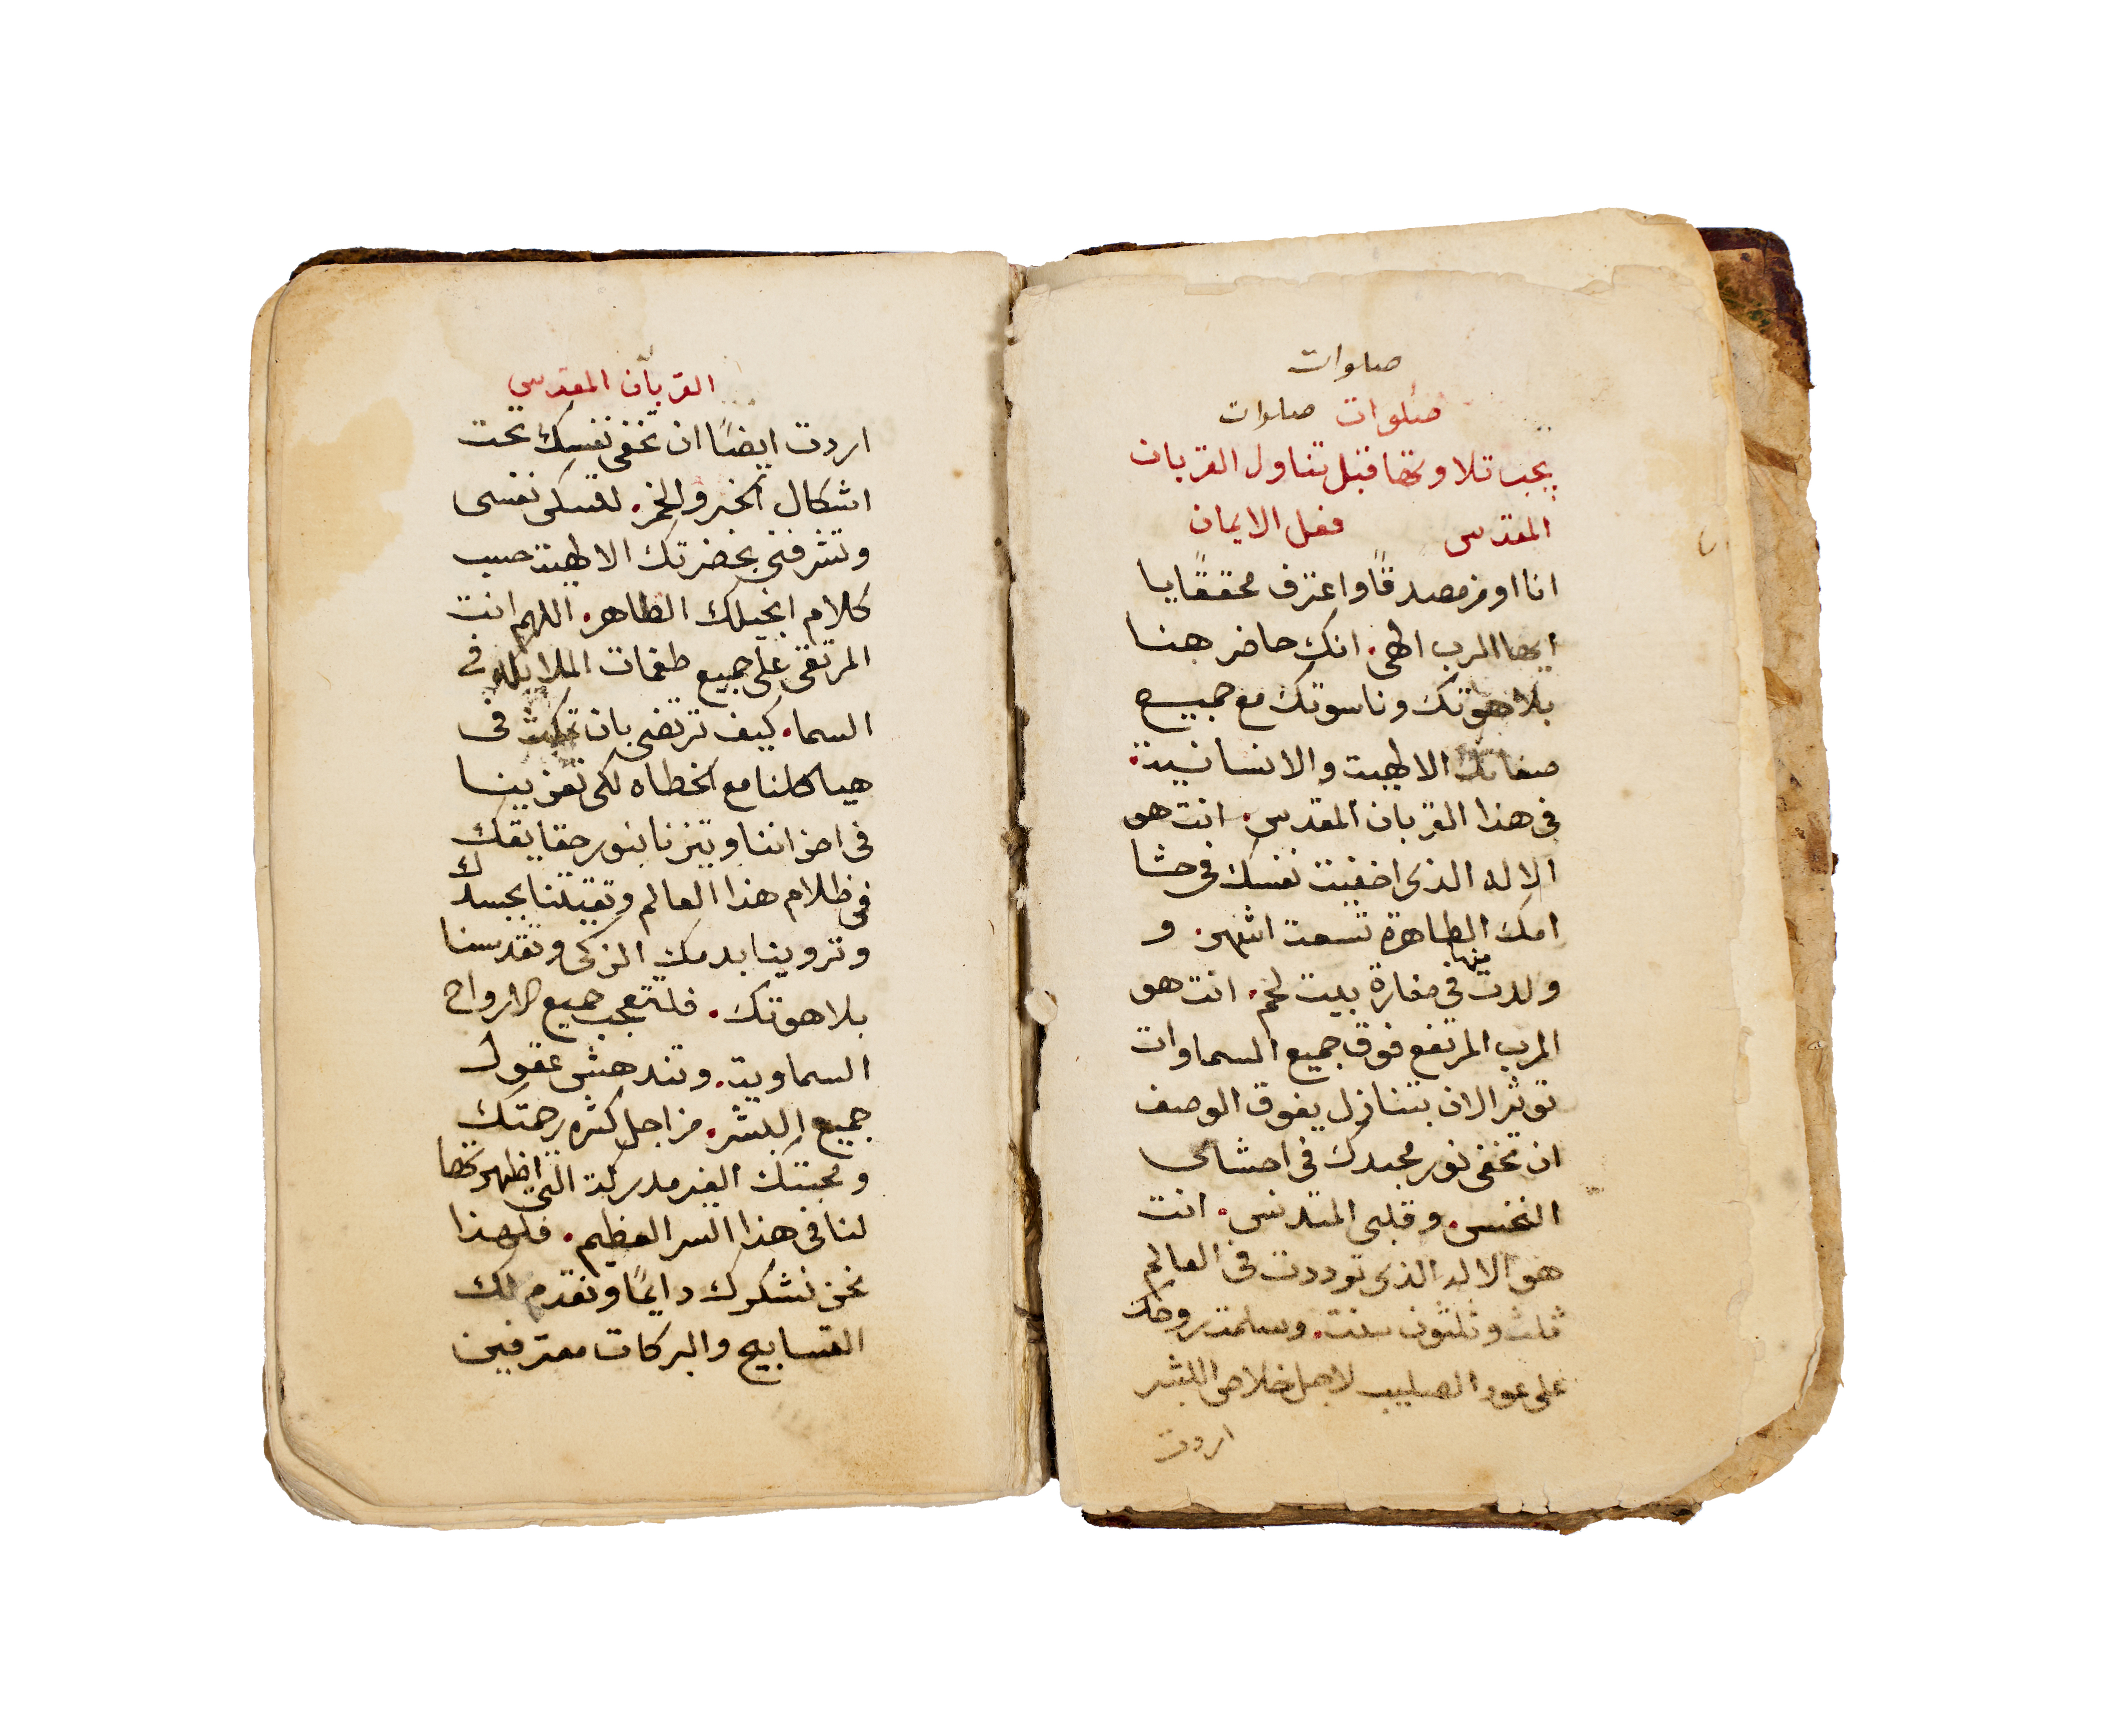 صلوات
صلوات صلوات
يجب تلاوتها قبل تناول القربان
المقدس فعل الايمان
انا اومن مصدقًا واعترف محققًا يا
ايها الرب الهى. انك حاضر هنا
بلاهوتك وناسوتك مع جميع
صفاتك الالهية والانسانية.
فى هذا القربان المقدس. انت هو
الاله الذى اخفيت نفسك فى حشا
امك الطاهرة تسعة اشهر. و
ولدت منها فى مغارة بيت لحم. انت هو
الرب المرتفع فوق جميع السماوات
توثر الان بتنازل يفوق الوصف
ان تخفى نور مجدك فى احشاى
النجس. وقلبى المتدنس. انت
هو الاله الذى توددت فى العالم
ثلث وثلثون سنة. وسلمت روحك
على عود الصليب لاجل خلاص البشر
اردت
القربان المقدس
اردت ايضًا ان تخفى نفسك تحت
اشكال الخبز والخمر. لتسكن نفسى
وتشرفنى بحضرتك الالهية حسب
كلام انجيلك الطاهر. اللهم انت
المرتقى على جميع طغمات الملايكه فى
السما. كيف ترتضى بان تمكث فى
هياكلنا مع الخطاه لكى تعزينا
فى احزاننا وتنيرنا بنور حقايقك
فى ظلام هذا العالم وتقيتنا بجسدك
وتروينا بدمك الزكى وتقدسنا
بلاهوتك. فلتتعجب جميع الارواح
السماوية. وتندهش عقول
جميع البشر. من اجل كثره رحمتك
ومحبتك الغير مدركة التى اظهرتها
لنا فى هذا السر العظيم. فلهذا
نحن نشكرك دايمًا ونقدم لك
التسابيح والبركات معترفين